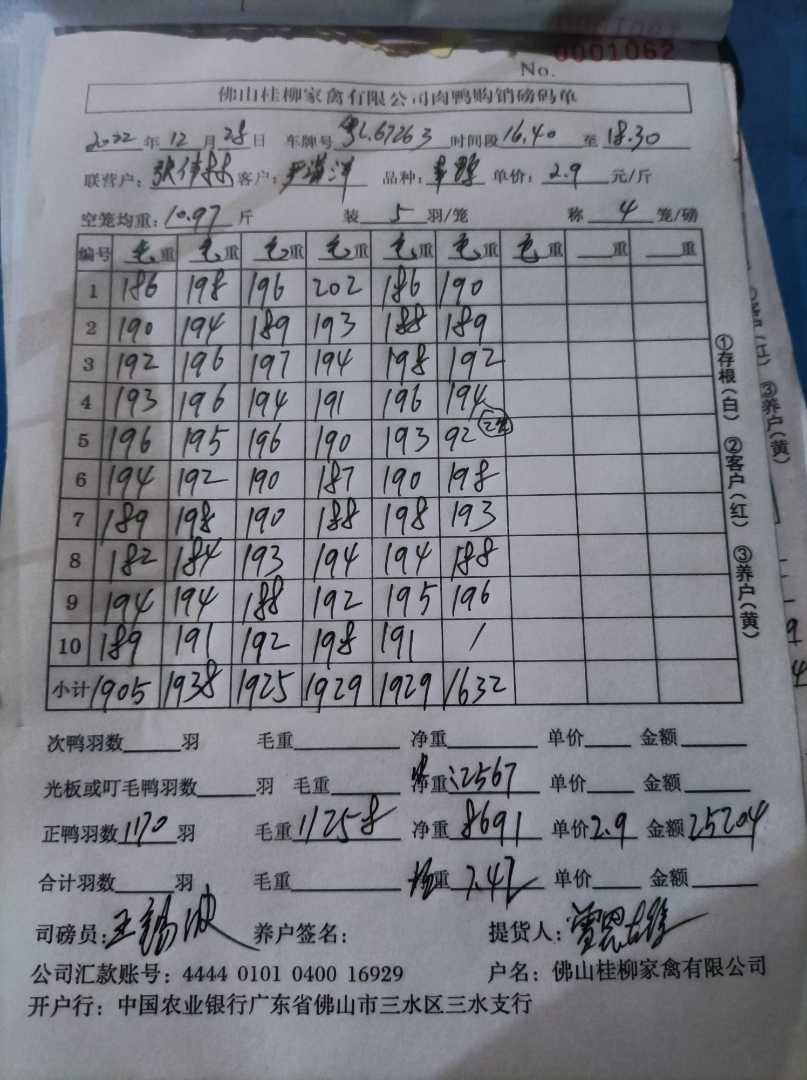 No. 0001062
佛山桂柳家禽有限公司肉鸭购销磅码单
2022 年 12 月 28 日 车牌号 L67263 时间段 16.40 至 18.30
联营户: 张伟林 客户: 洋 品种: 单价: 2.9 元/斤
空笼均重: 10.97 斤 装 5 羽/笼 称 4 笼/磅
编号 毛重 毛重 毛重 毛重 毛重 毛重 毛重 重 重
1 186 198 196 202 186 190
2 190 194 189 193 188 189
3 192 196 197 194 198 192
4 193 196 194 191 196 194
5 196 195 196 190 193 92 2笼
6 194 192 190 187 190 198
7 189 198 190 188 198 193
8 182 184 193 194 194 188
9 194 194 188 192 195 196
10 189 191 192 198 191 /
小计 1905 1938 1925 1929 1929 1632
次鸭羽数 羽 毛重 净重 单价 金额
光板或叮毛鸭羽数 羽 毛重 净重 2567 单价 金额
正鸭羽数 1170 羽 毛重 11258 净重 8691 单价 2.9 金额 25204
合计羽数 羽 毛重 重 7.42 单价 金额
司磅员: 王锡波 养户签名: 提货人:
公司汇款账号: 4444 0101 0400 16929 户名: 佛山桂柳家禽有限公司
开户行: 中国农业银行广东省佛山市三水区三水支行
①存根(白) ②客户(红) ③养户(黄)
③养户(黄)